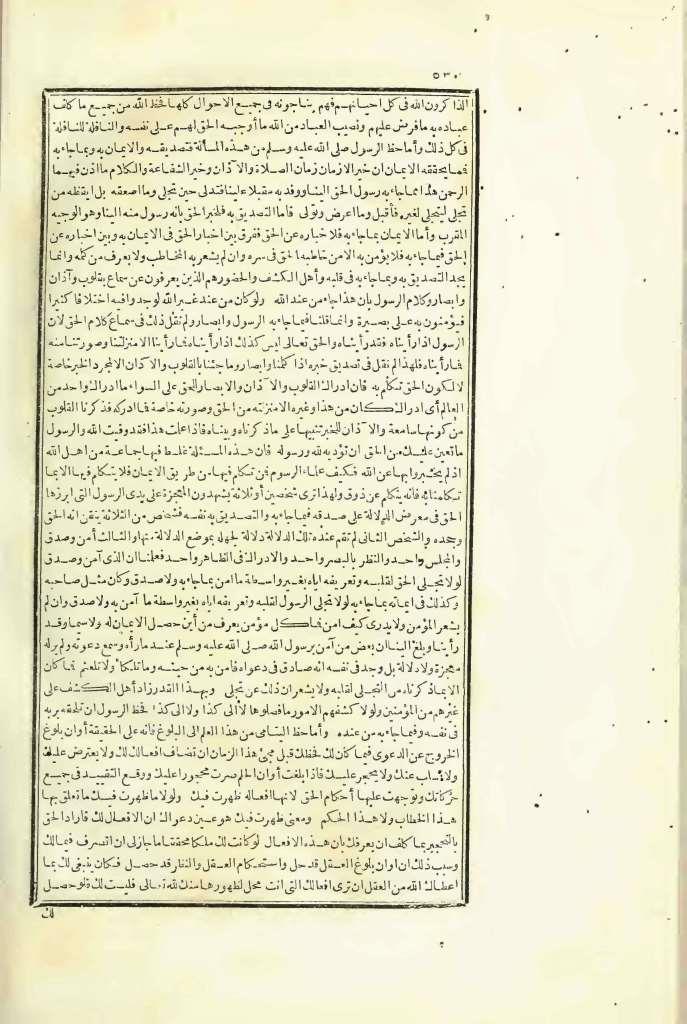 ٥٣٠
الذاكرون الله في كل احيانهم فهم يناجونه في جميع الاحوال كلها فحظ الله من جميع ما كلف
عباده به ما فرض عليهم ونصيب العباد من الله ما أوجبه الحق لهم على نفسه والنافلة للنافلة
في كل ذلك وأما حظ الرسول صلى الله عليه وسلم من هذه المسألة فتصديقه والايمان به وبما جاء به
فما يحققه الايمان ان خير الازمان زمان الصلاة والآذان وخير الشفاعة والكلام ما اذن فيهما
الرحمن هذا مما جاء به رسول الحق الينا ووفد به مقبلا علينا فتدلى حين تجلى وما اصعقه بل ايقظه من
تجلى ليتجلى لغيره فأقبل وما اعرض وتولى فاما التصديق به فلخبر الحق بانه رسول منه الينا وهو الوجيه
المقرب وأما الايمان بما جاء به فلاخباره عن الحق ففرق بين اخبار الحق في الايمان به وبين اخباره عن
الحق فيما جاء به فلا يؤمن به الا من خاطبه الحق في سره وان لم يشعر به المخاطب ولا يعرف من كلمه وانما
يجد التصديق به وبما جاء به في قلبه وأهل الكشف والحضور هم الذين يعرفون عن سماع بقلوب وآذان
وابصار وكلام الرسول بان هذا جاء من عند الله ولو كان من عند غير الله لوجدوا فيه اختلافا كثيرا
فيؤمنون به على بصيرة وانما قلنا فيما جاء به الرسول وابصار ولم نقل ذلك في سماع كلام الحق لان
الرسول اذا رأيناه فقد رأيناه والحق تعالى ليس كذلك اذا رأيناه فما رأينا الا منزلتنا وصورتنا منه
فما رأيناه فلهذا لم نقل في تصديق خبره اذا كلمنا وابصار وما جئنا بالقلوب والآذان الا لمجرد الخبر خاصة
لا لكون الحق تكلم به فان ادراك القلوب والآذان والابصار للحق على السواء ما ادراك واحد من
العالم أى ادراك كان من هذا وغيره الا منزلته من الحق وصورته خاصة فما ادركه فذكرنا القلوب
من كونها سامعة والآذان للخبر تنبيها على ما ذكرناه وبيناه فاذا علمت هذا فقد وفيت الله والرسول
ما تعين عليك من الحق ان تؤديه لله ورسوله فان هذه المسئلة غلط فيها جماعة من اهل الله
اذ لم يخبروا بها عن الله فكيف علماء الرسوم فمن تكلم فيها من طريق الايمان فلا يتكلم فيها الا بما
تكلمنا به فانه يتكلم عن ذوق ولهذا ترى شخصين أو ثلاثة يشهدون المعجزة على يدى الرسول التي ابرزها
الحق في معرض الدلالة على صدقه فيما جاء به والتصديق به نفسه فشخص من الثلاثة يتقن انه الحق
وجحده والشخص الثاني لم تقم عنده تلك الدلالة دلالة لجهله بموضع الدلالة منها والثالث آمن وصدق
والمجلس واحد والنظر بالبصر واحد والادراك في الظاهر واحد فعلمنا ان الذى آمن وصدق
لولا تجلى الحق لقلبه وتعريفه اياه بغير واسطة ما امن بما جاء به ولا صدق وكان مثل صاحبه
وكذلك في ايمانه بما جاء به لولا تجلى الرسول لقلبه وتعريفه اياه بغير واسطة ما آمن به ولا صدق وان لم
يشعر المؤمن ولا يدرى كيف امن فما كل مؤمن يعرف من أين حصل الايمان له ولا سيما وقد
رأينا وبلغ الينا ان بعض من آمن برسول الله صلى الله عليه وسلم عند ما رأه وسمع دعوته ولم ير له
معجزة ولا دلالة بل وجد في نفسه انه صادق في دعواه فامن به من حينه وما تلكأ ولا تلعثم فما كان
الا بما ذكرناه من التجلى لقلبه ولا يشعر ان ذلك عن تجلى وبهذا القدر زاد أهل الكشف على
غيرهم من المؤمنين ولولا كشفهم الامور ما فصلوها الى كذا ولا الى كذا فحظ الرسول ان تلحقه بربه
في نفسه وفيما جاء به من عنده وأما حظ اليتامى من هذا العلم الى البلوغ فانه على الحقيقة أوان بلوغ
الخروج عن الدعوى فيما كان لك فحظك قبل مجئ هذا الزمان ان تضاف افعالك لك ولا يعترض عليك
ولا تسأب عنك ولا يحجر عليك فاذا بلغت أوان الحلم صرت محجورا عليك ووقع التقييد في جميع
حركاتك وتوجهت عليها أحكام الحق لانها افعاله ظهرت فيك ولولا ما ظهرت فيك ما تعلق بها
هذا الخطاب ولا هذا الحكم ومعنى ظهرت فيك هو عين دعواك ان الافعال لك فاراد الحق
بالتحجير بما كلف ان يعرفك بان هذه الافعال لو كانت لك ملكا محققا ما جاز لى ان اتصرف فيما لك
وسبب ذلك ان اوان بلوغ العقل قد حل واستحكام العقل والنظر قد حصل فكان ينبغى لك بما
اعطاك الله من العقل ان ترى افعالك التي انت محل لظهورها منك لله تعالى فليست لك فلو حصل
لك